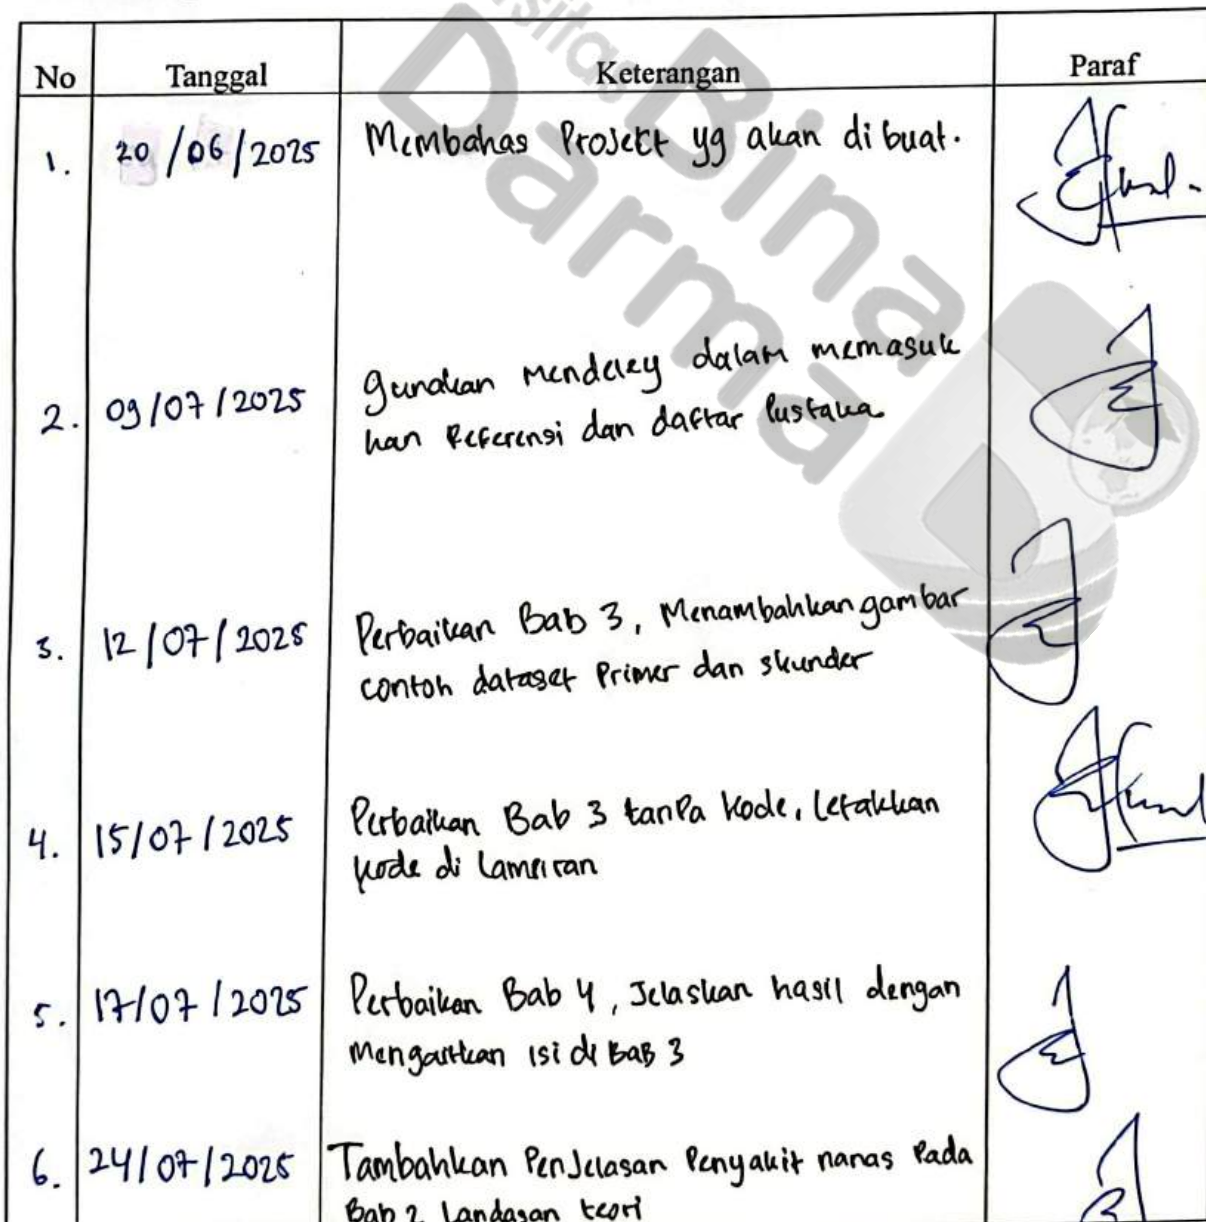 sitas
Bina
Darma
No Tanggal Keterangan Paraf
1. 20/06/2025 Membahas Project yg akan di buat.
2. 09/07/2025 gunakan mendeley dalam memasuk
kan Referensi dan daftar Pustaka
3. 12/07/2025 Perbaikan Bab 3, Menambahkan gambar
contoh dataset Primer dan skunder
4. 15/07/2025 Perbaikan Bab 3 tanPa kode, letakkan
kode di LamPiran
5. 17/07/2025 Perbaikan Bab 4, Jelaskan hasil dengan
Mengaitkan isi di BaB 3
6. 24/07/2025 Tambahkan PenJelasan Penyakit nanas Pada
Bab 2 Landasan teori